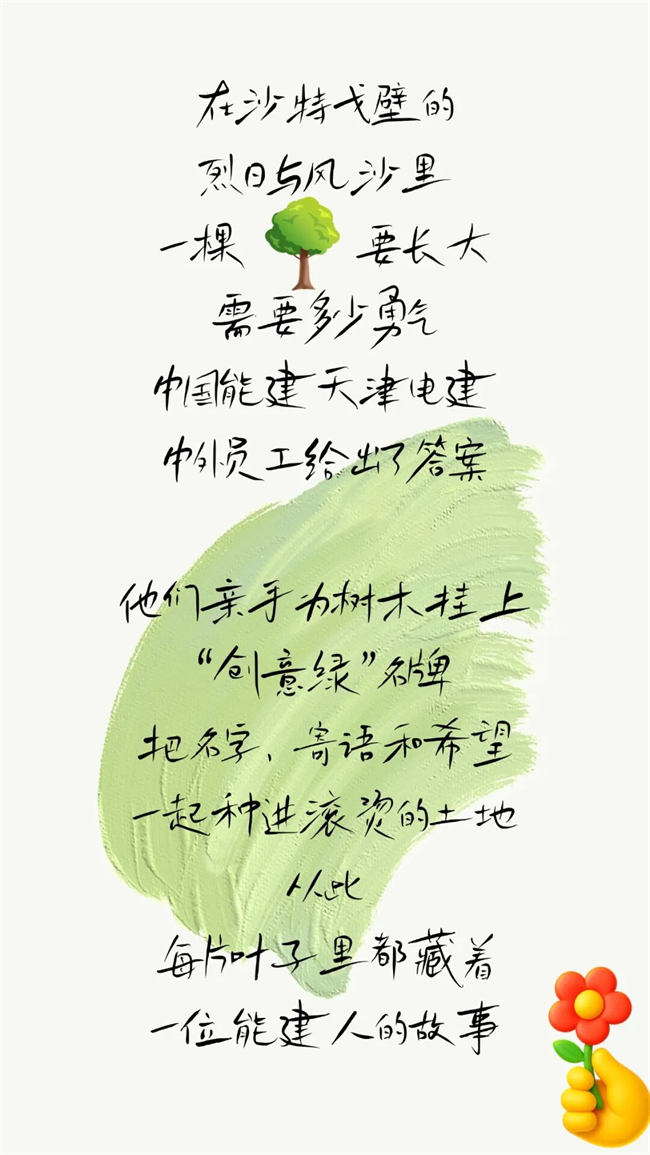 在沙特戈壁的
烈日与风沙里
一棵 要长大
需要多少勇气
中国能建天津电建
中外员工给出了答案
他们亲手为树木挂上
“创意绿”名牌
把名字、寄语和希望
一起种进滚烫的土地
从此
每片叶子里都藏着
一位能建人的故事